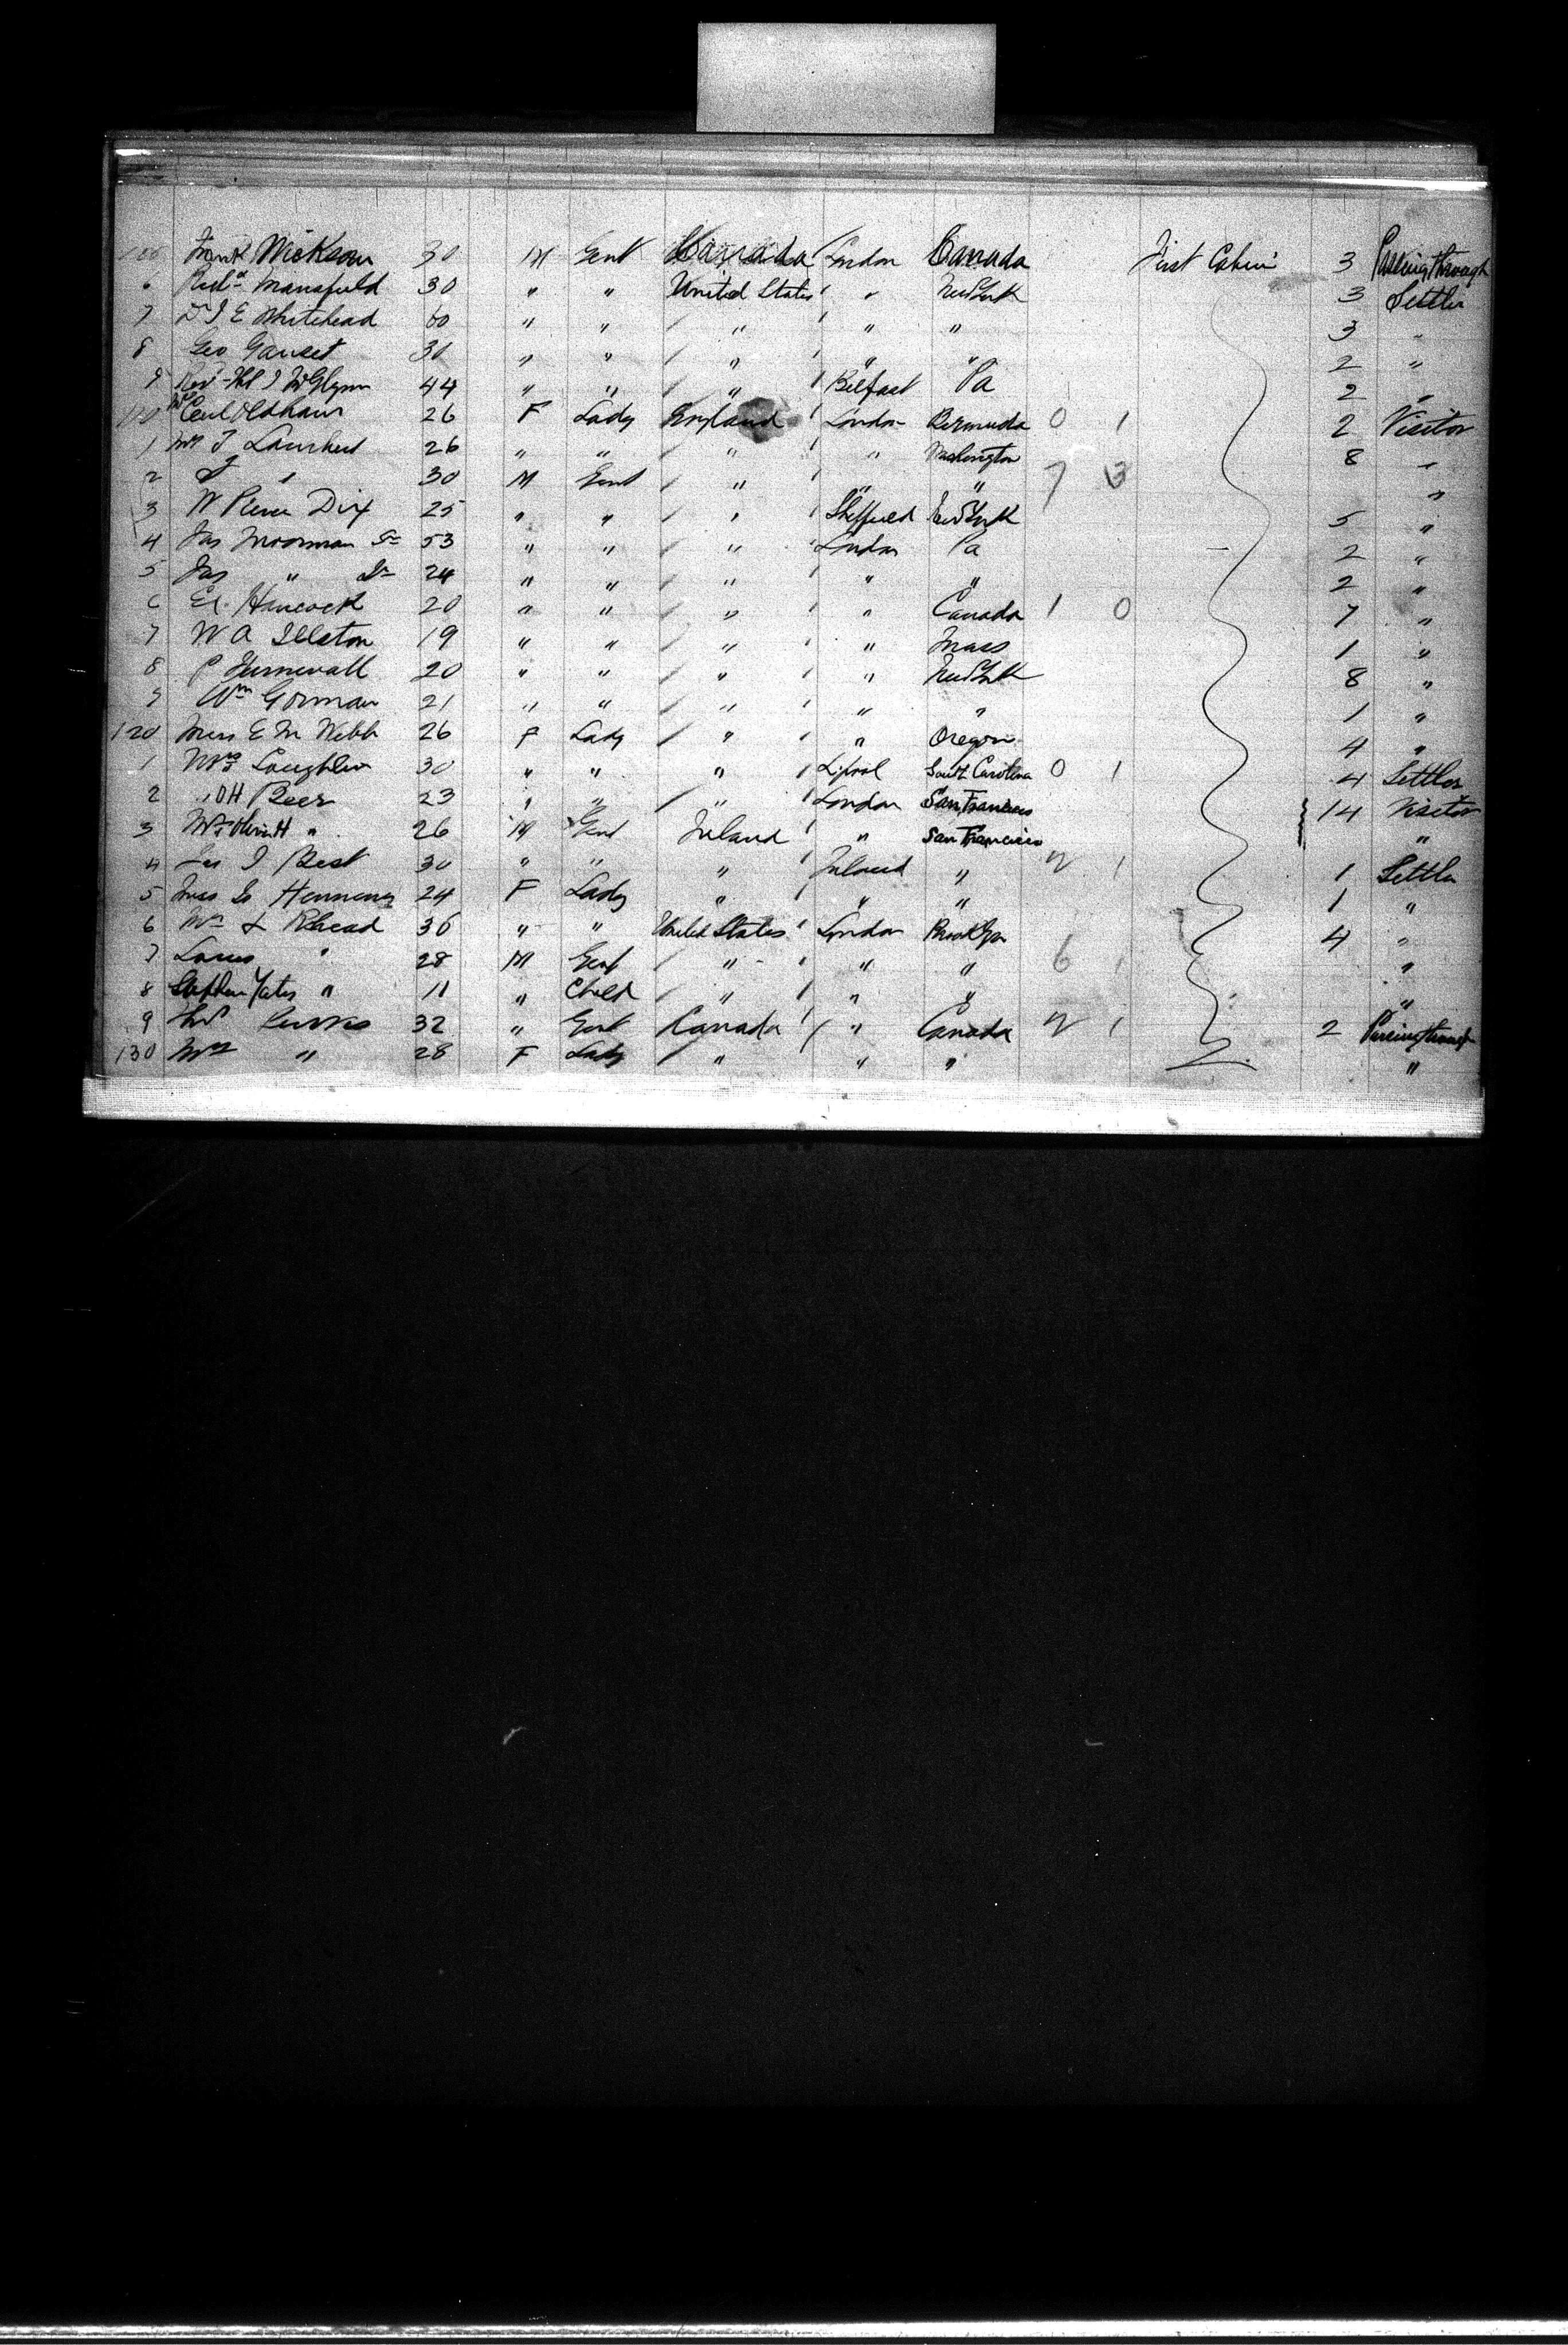 Frank Nickson 30 M Gent Canada London Canada First Cabin 3 Passing through
6 Richd Mansfield 30 " " United States " New York 3 Settler
7 Dr I E Whitehead 60 " " " " " 3 "
8 Geo 30 " " " " " 2 "
9 Rev McGlynn 44 " " " Belfast Pa 2 "
110 Oldham 26 F Lady England London Bermuda 0 1 2 Visitor
1 Mrs J 26 " " " " Washington 8 "
2 J " 30 M Gent " " " 7 3 "
3 W Pierce Dix 25 " " " Sheffield New York 5 "
4 Jas Moorman Sr 53 " " " London Pa 2 "
5 Jas " Jr 24 " " " " " 2 "
6 Hancock 20 " " " " Canada 1 0 7 "
7 W A Illston 19 " " " " Mass 1 "
8 P Furnivall 20 " " " " New York 8 "
9 Wm Gorman 21 " " " " " 1 "
120 Miss E M Webb 26 F Lady " " Oregon 4 "
1 Mrs Loughlin 30 " " " L'pool South Carolina 0 1 4 Settler
2 " O H Beer 23 " " " London San Francisco 14 Visitor
3 " 26 M Gent Ireland " San Francisco "
4 J Best 30 " " " Ireland " 1 1 Settler
5 Miss 24 F Lady " " " 1 "
6 Mrs L Rhead 36 " " United States London Brooklyn 4 "
7 Louis " 28 M Gent " " " 6 1 "
8 Yates " 11 " Child " " " "
9 32 " Gent Canada " Canada 1 2 Passing through
130 Mrs " 28 F Lady " " " "